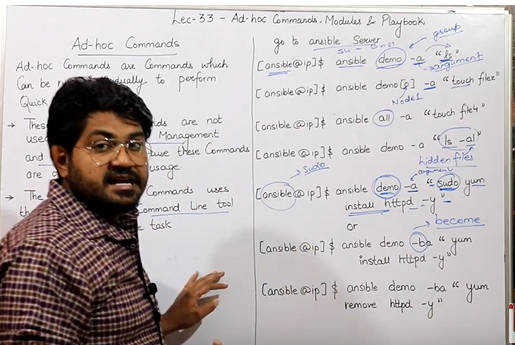 Lec-33 - Ad-hoc Commands, Modules & Playbook
Ad-hoc Commands
Ad-hoc Commands are Commands which
Can be r dually to perform
Quick
→ These ds are not
use Management
and use these Commands
are usage
→ The Commands uses
th ommand Line tool
task
go to ansible Server
su - ansi
group
[ansible@ip]$ ansible demo -a "ls"
argument
[ansible@ip]$ ansible demo[0] -a "touch filez"
Node1
[ansible@ip]$ ansible all -a "touch file4"
[ansible@ip]$ ansible demo -a "ls -al"
Sudo
hidden files
argument
[ansible@ip]$ ansible demo -a "Sudo yum
install httpd -y"
or
become
[ansible@ip]$ ansible demo -ba "yum
install httpd -y"
[ansible@ip]$ ansible demo -ba "yum
remove httpd -y"